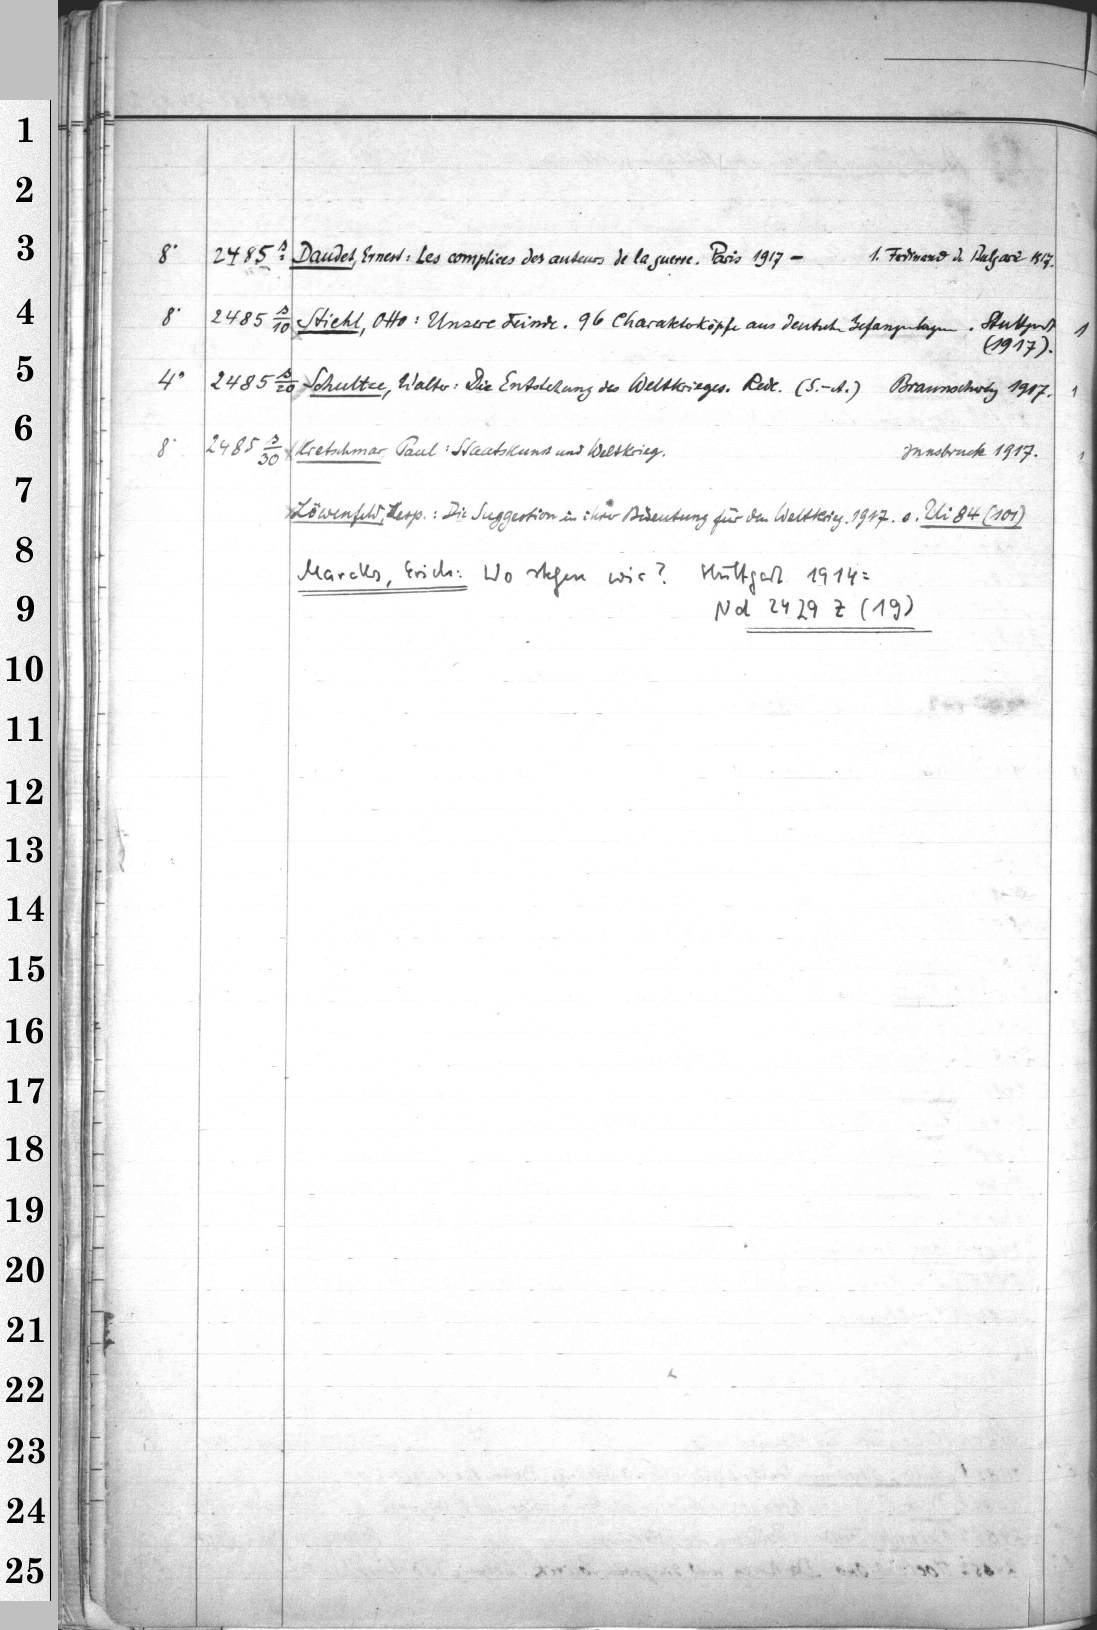 1
2
3
8° 2485 s: Daudet, Ernest: Les complices des auteurs de la guerre. Paris 1917 – 1. Ferdinand de Bulgarie 1917.
4
8° 2485 s/10 Stiehl, Otto: Unsere Feinde. 96 Charakterköpfe aus deutschen Gefangenlagern. Stuttgart 1
(1917).
5
4° 2485 s/20 Schultze, Walter: Die Entstehung des Weltkrieges. Rede. (S.-A.) Braunschweig 1917. 1
6
8° 2485 s/30 Kretschmar Paul: Staatskunst und Weltkrieg. Innsbruck 1917. 1
7
Löwenfeld, : Die Suggestion in ihrer Bedeutung für den Weltkrieg. 1917. s. Ui 84 (101)
8
Marcks, Erich: Wo stehen wir? Stuttgart 1914=
9
Nd 2429 Z (19)
10
11
12
13
14
15
16
17
18
19
20
21
22
23
24
25